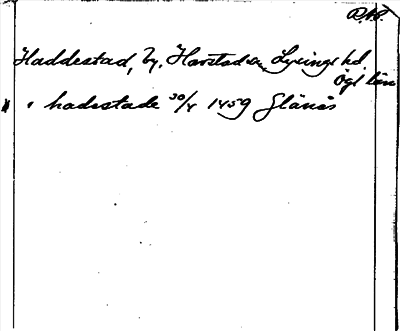 Haddestad, by, Harstads sn, Lysings hd,
Ögl län
i hadestade 30/4 1459 Glänås